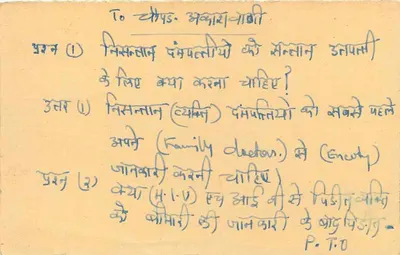 To चौपड. अकाशवाणी
प्रश्न (1) निसन्तान दंमपत्तीयो को सन्तान उत्पत्ती
के लिए क्या करना चाहिए?
उत्तर (1) निसन्तान (व्यक्ति) दंमपत्तियो को सबसे पहले
अपने (Family doctor.) से
जानकारी करनी चाहिए।
प्रश्न (2) क्या (H.I.V) एच आई वी से पिडीत व्यक्ति
को बीमारी की जानकारी के बाद
P.T.O